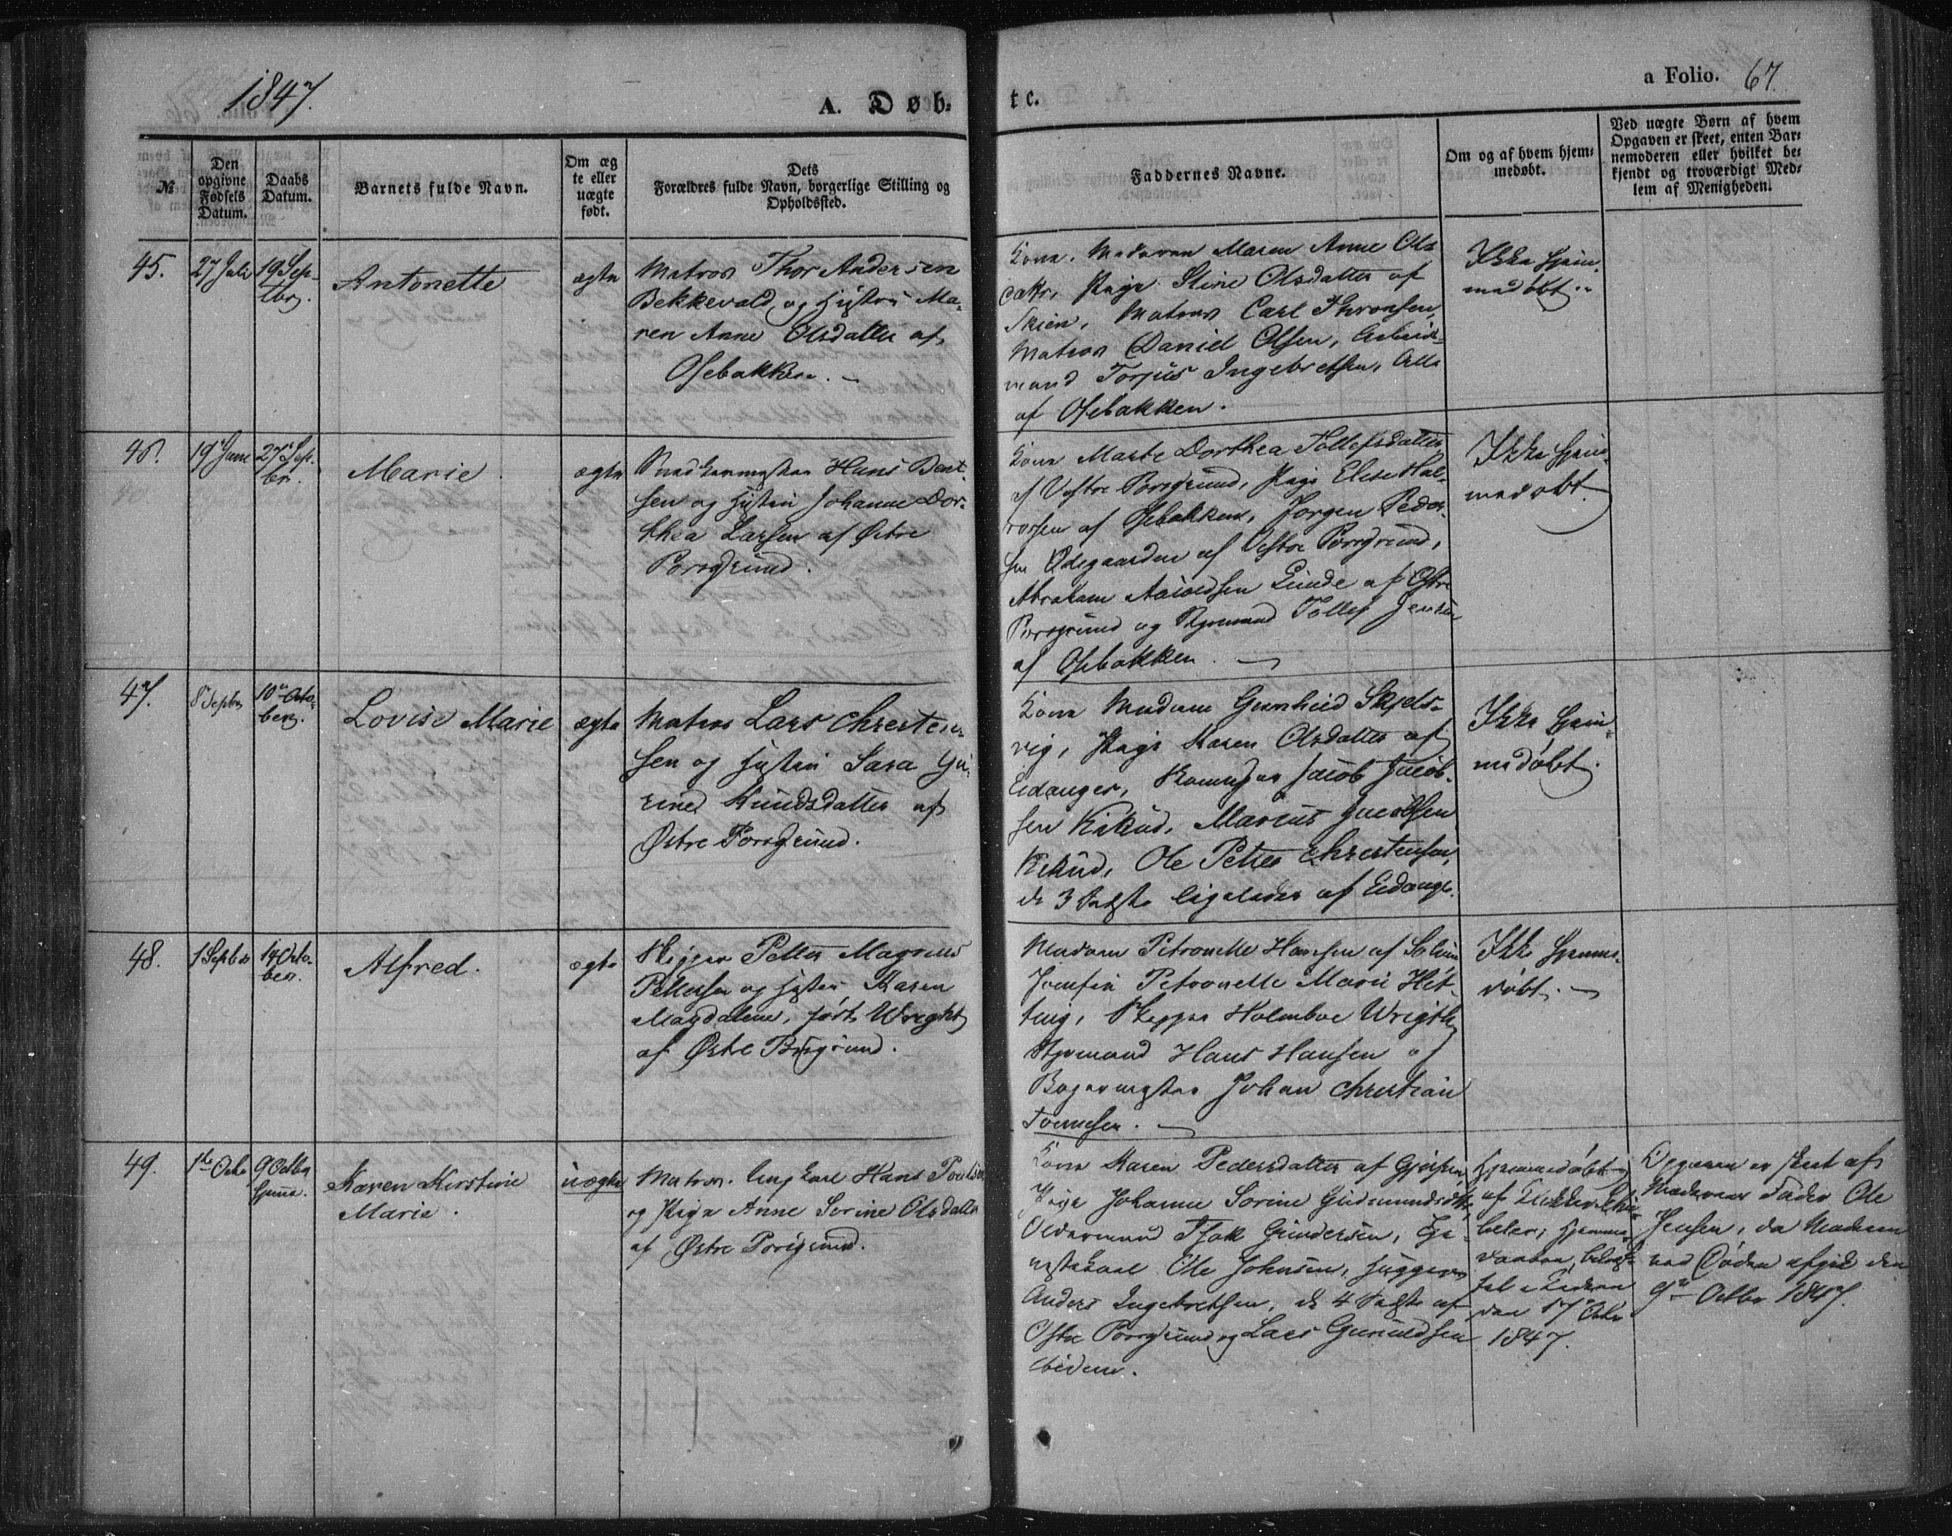 1847.
A. Døb-
te.
a Folio. 67.
№
Den opgivne Fødsels Datum.
Daabs Datum.
Barnets fulde Navn.
Om ægte eller uægte født.
Dets Forældres fulde Navn, borgerlige Stilling og Opholdssted.
Faddernes Navne.
Om og af hvem hjemmedøbt.
Ved uægte Børn af hvem Opgaven er skeet, enten Barnemoderen eller hvilket bekjendt og troværdigt Medlem af Menigheden.
45.
27 Juli
19 Sep-
tbr.
Antonette
ægte
Matros Thor Andersen
Bekkevald og Hustru Ma-
ren Anne Olsdatter af
Osebakken. -
Kone. Madamen Maren Anne Ols
datr, Pige Stine Olsdatter af
Skien, Matros Carl
Matros Daniel Olsen, Arbeids-
mand Torjus Ingebretsen, Alle
af Osebakken.
Ikke hjem-
medøbt.
46.
19 June
27 Sep.
br.
Marie
ægte
Snedkermester Hans Bent-
sen og Hustru Johanne Dor-
thea Larsen af Østre
Porsgrund.
Kone Marte Dorthea Tollefsdatter
af Vestre Porsgrund, Pige Elise Hal-
vorsen af Osebakken, Jørgen Peder-
sen Ødegaarden af Vestre Porsgrund,
Abraham Linde af Østre
Porsgrund og Styrmand Tollef Jensen
af Osebakken. -
Ikke hjem-
medøbt.
47.
8 Septbr
10de Octo-
ber.
Lovise Marie
ægte
Matros Lars Christen-
sen og Hustru Sara Gu-
rine Knudsdatter af
Østre Porsgrund.
Kone Madam Gunhild Skjels-
vig, Pige Karen Olsdatter af
Eidanger, Jacob Jacob-
sen Kikud, Marius Jacobsen
Kikud, Ole Petter Christensen,
de 3 Sidste ligeledes af Eidange.
Ikke hjem-
medøbt.
48.
1 Septbr
14 Octo-
ber.
Alfred.
ægte
Skipper Petter Magnus
Pettersen og Hustru Karen
Magdalene, født Wright
af Østre Porsgrund.
Madam Petronelle Hansen af
Jomfru Petronelle Marie Hit-
ting, Skipper Holmboe Wrigth
Styrmand Hans Hansen og
Bagermester Johan Christian
-
Ikke hjemme-
døbt. -
49.
1te Octo
9 Octbr
hjem.
Karen Kirstine
Marie.
uægte
Matros Ungkarl Hans
og Pige Anne Serine Olsdatter
af Østre Porsgrund.
Kone Karen Pedersdatter af Gjerpen,
Pige Johanne Sorine Gudmundsdtr,
Oldermand Isak Gundersen, Tje-
nestekarl Ole Johnsen, Huggeren
Anders Ingebretsen, de 4 Sidste af
Østre Porsgrund og Lars Gunuldsen
ibidem.
Hjemmedøbt
af Klokker
beler; hjemme-
daaben, bekræf-
tet i Kirken
den 17 Octbr
1847.
Opgaven er skeet af
Moderens Fader Ole
Jensen, da Moderen
ved Døden afgik den
9de Octbr 1847.